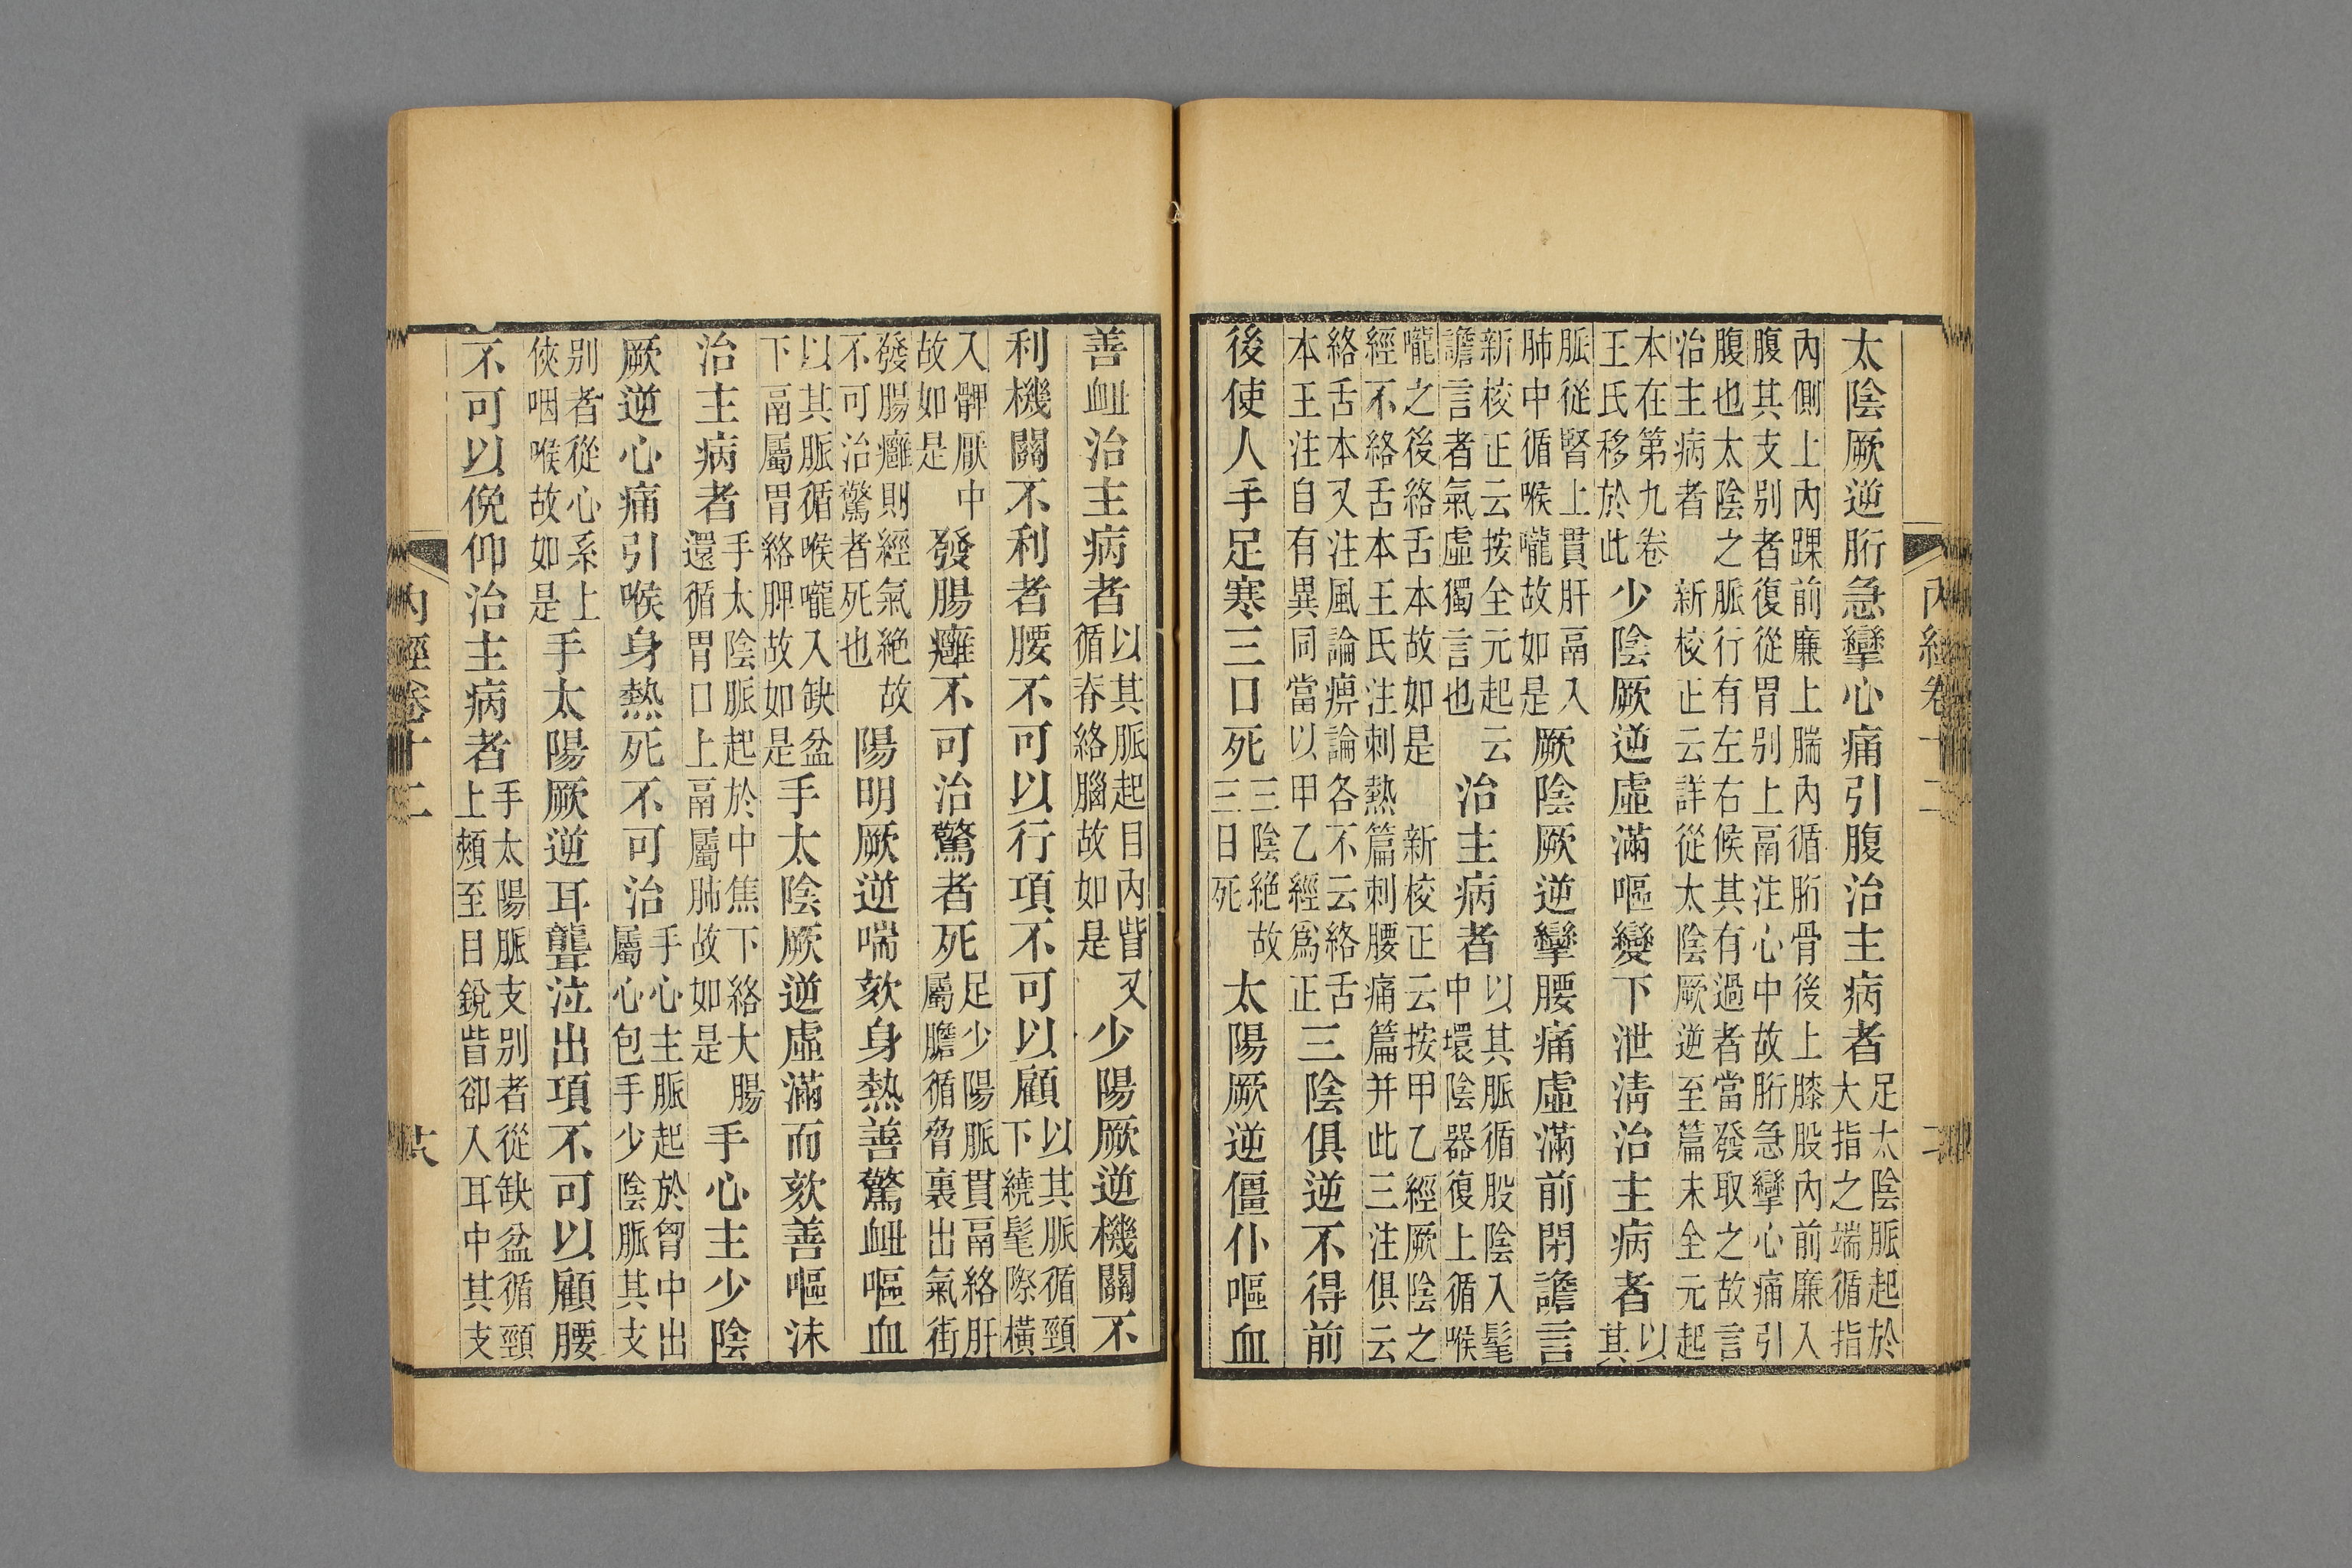 內經卷十二
太陰厥逆胻急攣心痛引腹治主病者
足太陰脈起於
大指之端循指
內側上內踝前廉上腨內循胻骨後上膝股內前廉入
腹其支别者復從胃别上鬲注心中故胻急攣心痛引
腹也太陰之脈行有左右候其有過者當發取之故言
治主病者 新校正云詳從太陰厥逆至篇末全元起
本在第九卷
王氏移於此
少陰厥逆虛滿嘔變下泄淸治主病者
以
其
脈從腎上貫肝鬲入
肺中循喉嚨故如是
厥陰厥逆攣腰痛虛滿前閉譫言
新校正云按全元起云
譫言者氣虛獨言也
治主病者
以其脈循股陰入髦
中環陰器復上循喉
嚨之後絡舌本故如是 新校正云按甲乙經厥陰之
經不絡舌本王氏注刺熱篇刺腰痛篇并此三注俱云
絡舌本又注風論痹論各不云絡舌
本王注自有異同當以甲乙經爲正
三陰俱逆不得前
後使人手足寒三口死
三陰絶故
三日死
太陽厥逆僵仆嘔血
善衄治主病者
以其脈起目內眥又
循脊絡腦故如是
少陽厥逆機關不
利機關不利者腰不可以行項不可以顧
以其脈循頸
下繞髦際橫
入髀厭中
故如是
發腸癰不可治驚者死
足少陽脈貫鬲絡肝
屬膽循脅裏出氣街
發腸癰則經氣絶故
不可治驚者死也
陽明厥逆喘欬身熱善驚衄嘔血
以其脈循喉嚨入缺盆
下鬲屬胃絡脾故如是
手太陰厥逆虛滿而欬善嘔沫
治主病者
手太陰脈起於中焦下絡大腸
還循胃口上鬲屬肺故如是
手心主少陰
厥逆心痛引喉身熱死不可治
手心主脈起於胷中出
屬心包手少陰脈其支
别者從心系上
俠咽喉故如是
手太陽厥逆耳聾泣出項不可以顧腰
不可以俛仰治主病者
手太陽脈支别者從缺盆循頸
上頰至目銳眥卻入耳中其支
內經卷十二